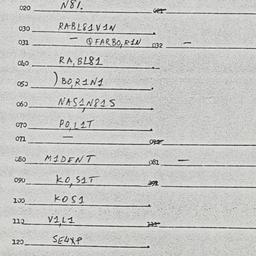 020 N81. 021
030 RABL81V1N
031 — QFARBO,R1N 032 —
040 RA,BL81 .
050 )BO,R1N1 .
060 NAS1N81S .
070 PO,L1T .
071 —
080 M1DENT 081 —
090 KO,S1T .
100 KOS1 .
110 V1,L1 .
120 SE4XP .